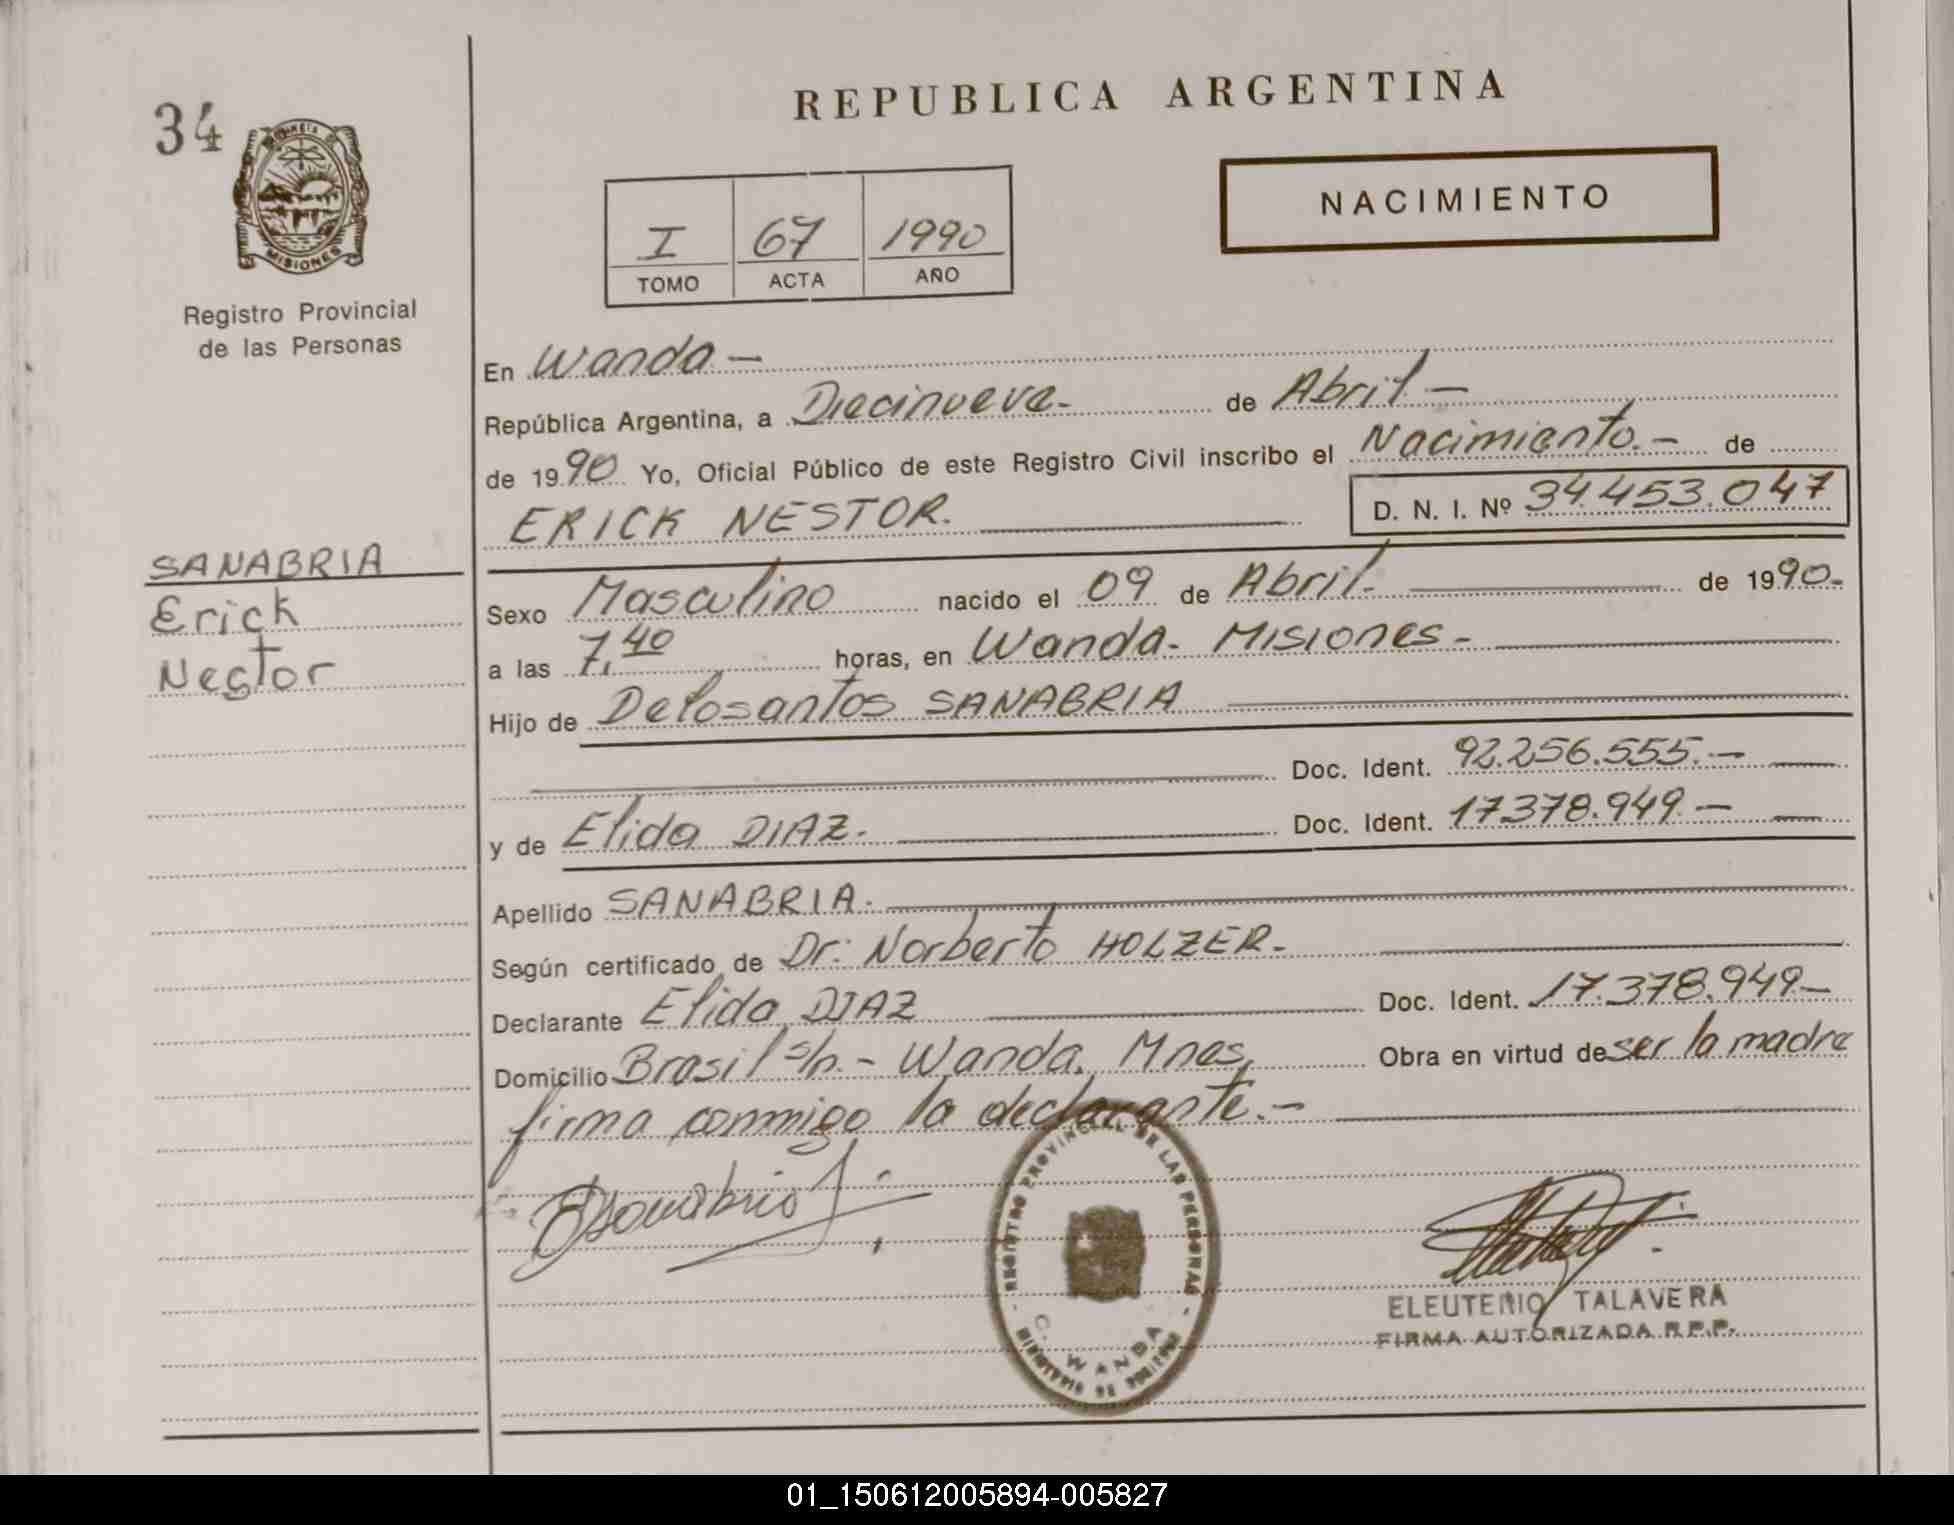 REPUBLICA ARGENTINA
34
MISIONES
Registro Provincial
de las Personas
NACIMIENTO
I 67 1990
TOMO ACTA AÑO
En Wanda —
República Argentina, a Diecinueve.- de Abril —
de 1990 Yo, Oficial Público de este Registro Civil inscribo el Nacimiento.- de
ERICK NESTOR. D. N. I. Nº 34.453.047
SANABRIA
Erick
Nestor
Sexo Masculino nacido el 09 de Abril. de 1990.-
a las 7,40 horas, en Wanda- Misiones -
Hijo de Delosantos SANABRIA
Doc. Ident. 92.256.555.-
y de Elida DIAZ. Doc. Ident. 17.378.949.-
Apellido SANABRIA.
Según certificado de Dr: Norberto HOLZER.-
Declarante Elida DIAZ Doc. Ident. 17.378.949.-
Domicilio Brasil s/n.- Wanda. Mnes, Obra en virtud de ser la madre
firma conmigo la declarante.-
REGISTRO PROVINCIAL DE LAS PERSONAS
C. WANDA
MINISTERIO DE GOBIERNO
ELEUTERIO TALAVERA
FIRMA AUTORIZADA R.P.P.
01_150612005894-005827